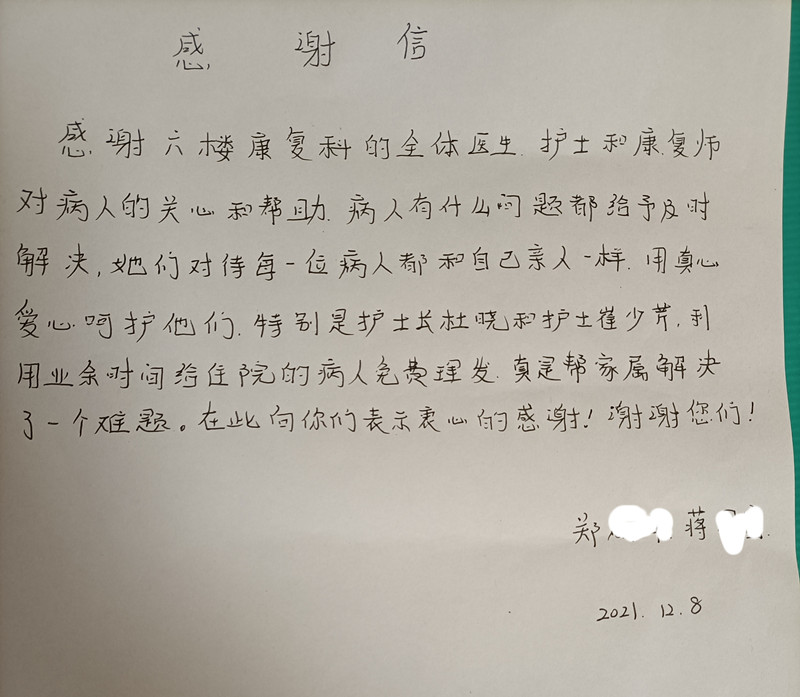 感谢信
感谢六楼康复科的全体医生.护士和康复师
对病人的关心和帮助.病人有什么问题都给予及时
解决,她们对待每一位病人都和自己亲人一样.用真心
爱心呵护他们.特别是护士长杜晓和护士崔少芹,利
用业余时间给住院的病人免费理发.真是帮家属解决
了一个难题。在此向你们表示衷心的感谢!谢谢您们!
郑 蒋
2021.12.8